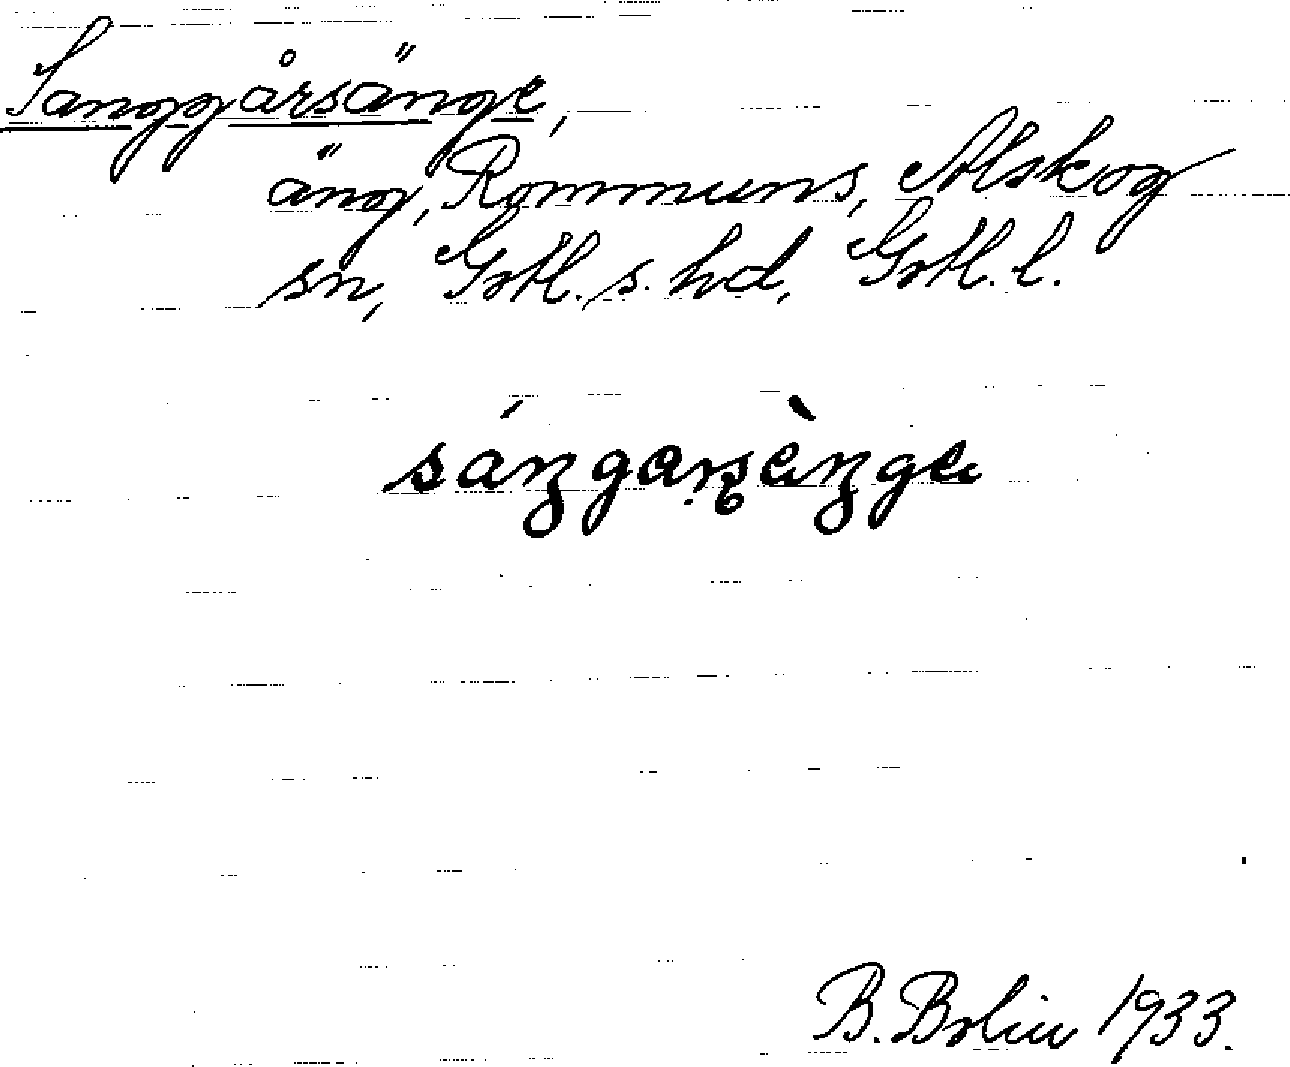 Sanggårsänge,
äng, Rommuns, Alskog
sn, Gotl. s. hd, Gotl. l.
B. Bolin 1933.